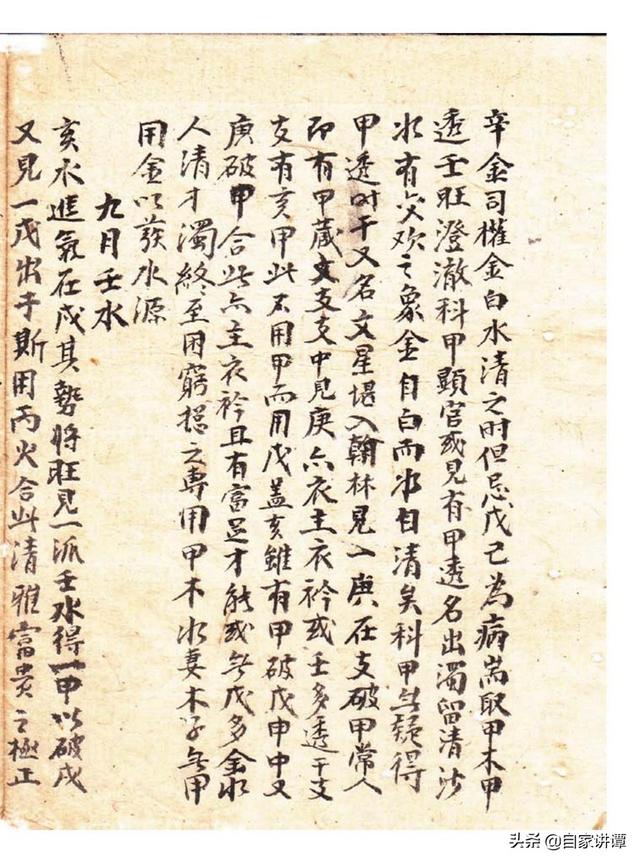 辛金司權金白水清之时但忌戊己為病耑取甲木甲
透壬旺澄澈科甲顕宦或見有甲透名出濁留清沙
水有交欢之象金自白而水自清矣科甲無疑得
甲透时干又名文星堪入翰林見入庚在支破甲常人
即有甲藏支支中見庚亦衣主衣衿或壬多透干支
支有亥甲此不用甲而用戊盖亥雖有甲破戊申中又
庚破甲合此亦主衣衿且有富足才能或無戊多金水
人清才濁終至困窮搃之専用甲木水妻木子無甲
用金以發水源
九月壬水
亥水進氣在戌其勢将旺見一派壬水得一甲以破戌
又見一戊出干斯用丙火合此清雅富贵之極正
头条 @自家讲谭